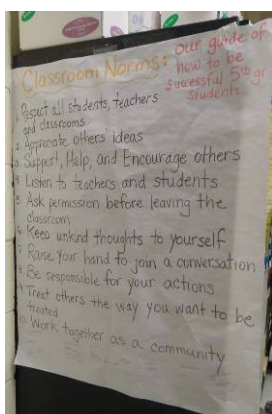 Classroom Norms:
our guide of
how to be
successful 5th gr
students
1. Respect all students, teachers
and classrooms
2. Appreciate others ideas
3. Support, Help, and Encourage others
4. Listen to teachers and students
5. Ask permission before leaving the
classroom
6. Keep unkind thoughts to yourself
7. Raise your hand to join a conversation
8. Be responsible for your actions
9. Treat others the way you want to be
treated
10. Work together as a community